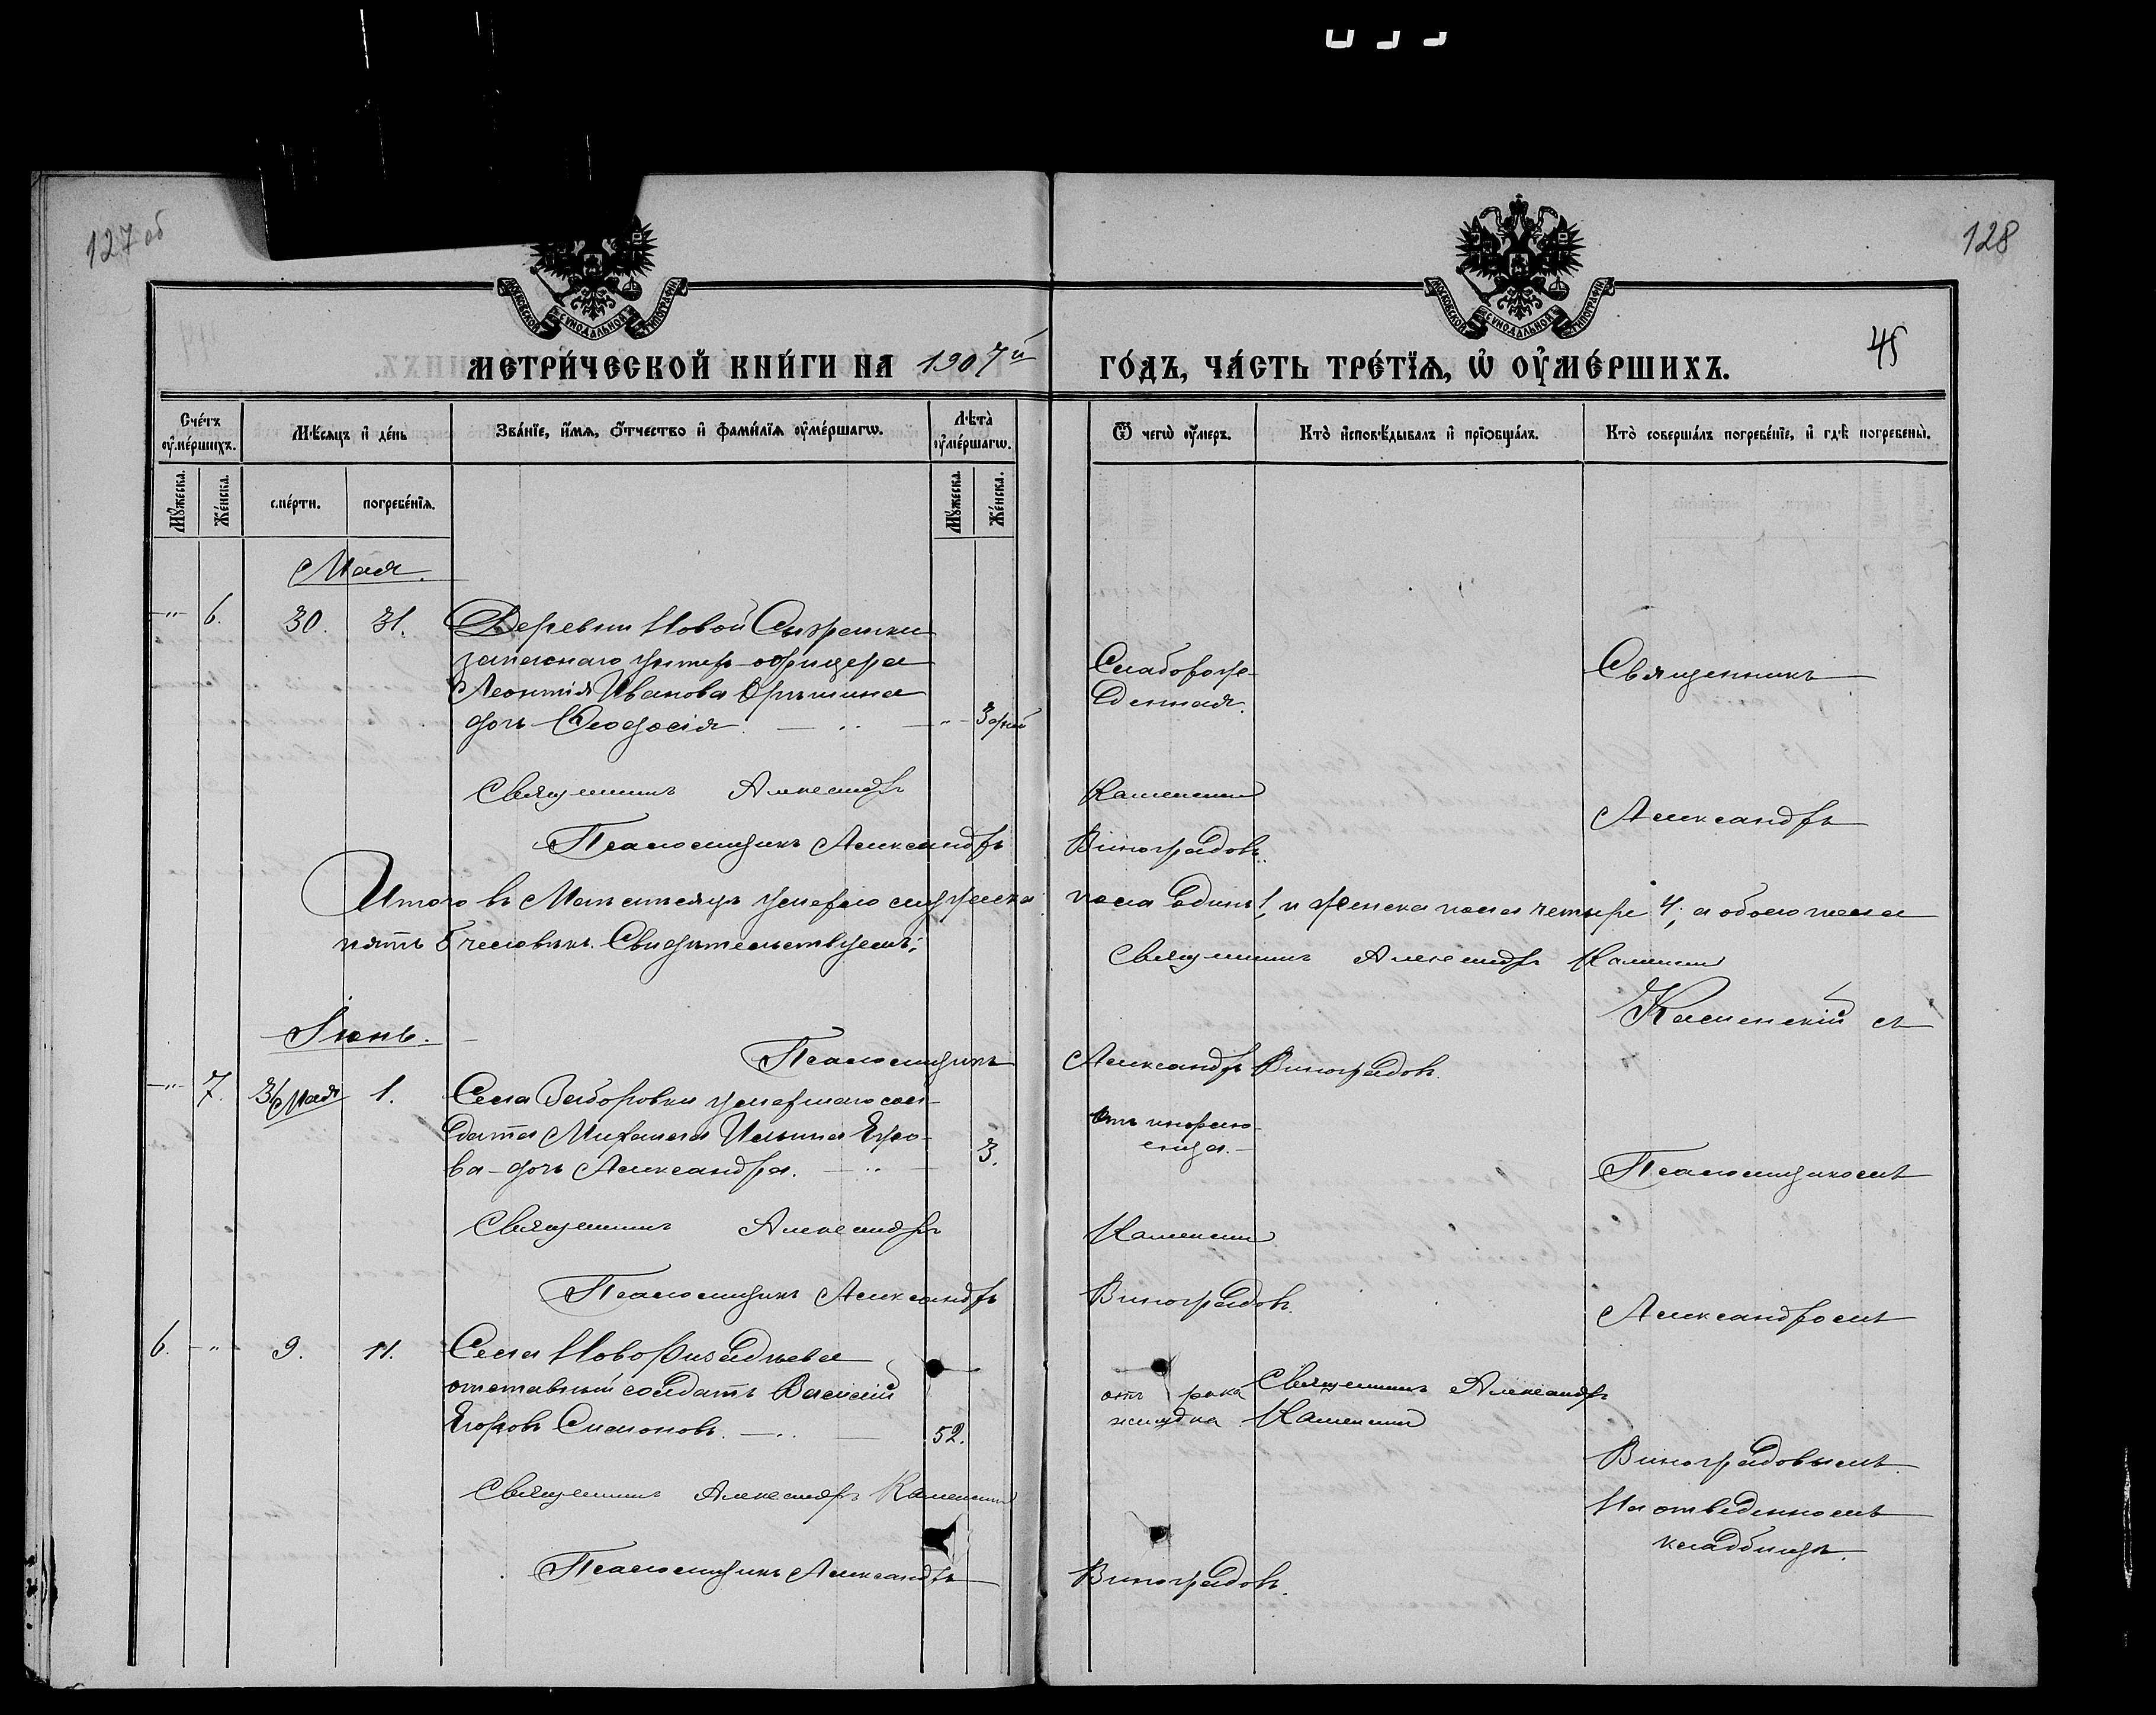 127 об
128
МОСКОВСКОЙ СѴНОДАЛЬНОЙ ТИПОГРАФІИ
МОСКОВСКОЙ СѴНОДАЛЬНОЙ ТИПОГРАФІИ
45
МЕТРИ́ЧЕСКОЙ КНИ́ГИ НА 1907й ГО́ДЪ, ЧА́СТЬ ТРЕ́ТЇѦ, Ѡ҆ ОУ҆МЕ́РШИХЪ.
Сче́тъ оу҆ме́ршихъ.
Мѣ́сяцъ и҆ де́нь
Зва́нїе, и҆́мѧ, ѻ҆́тчество и҆ фами́лїѧ оу҆ме́ршагѡ.
Лѣта̀ оу҆ме́ршагѡ.
Ѿ чегѡ̀ оу҆́меръ.
Кто̀ и҆сповѣ́дывалъ и҆ прїѻбща́лъ.
Кто̀ соверша́лъ погребе́нїе, и҆ гдѣ̀ погребены̀.
Мꙋ́жеска.
Же́нска.
сме́рти.
погребе́нїѧ.
Мꙋ́жеска.
Же́нска.
Мая.
-"- 6. 30. 31. Деревни Новой Сызрешки
запаснаго унтер-офицера
Леонтія Иванова
дочь Ѳеодосія. " 3 дней
Слаборож-
денная.
Священникъ
Священникъ Александръ Каменскій
Александръ
Псаломщикъ Александръ Виноградовъ.
Итого въ Маѣ мѣсяцѣ умерло мужеска пола одинъ 1, и женска пола четыре 4, а обоего пола
пять 5 человѣкъ. Свидѣтельствуемъ:
Священникъ Александръ Каменскій
Каменскій съ
Іюнь.
Псаломщикъ Александръ Виноградовъ.
-"- 7. 31 Мая 1. Села Заборовки умершаго сол-
дата Михаила Ильина Его-
ва дочь Александра. 3.
Отъ
Псаломщикомъ
Священникъ Александръ Каменскій
Псаломщикъ Александръ Виноградовъ.
Александромъ
6. -"- 9. 11. Села
отставный солдатъ Василій
Егоровъ Симоновъ. 52.
отъ рака
желудка
Священникъ Александръ
Каменскій
Виноградовымъ.
Священникъ Александръ Каменскій
На отведенномъ
кладбищѣ.
Псаломщикъ Александръ Виноградовъ.